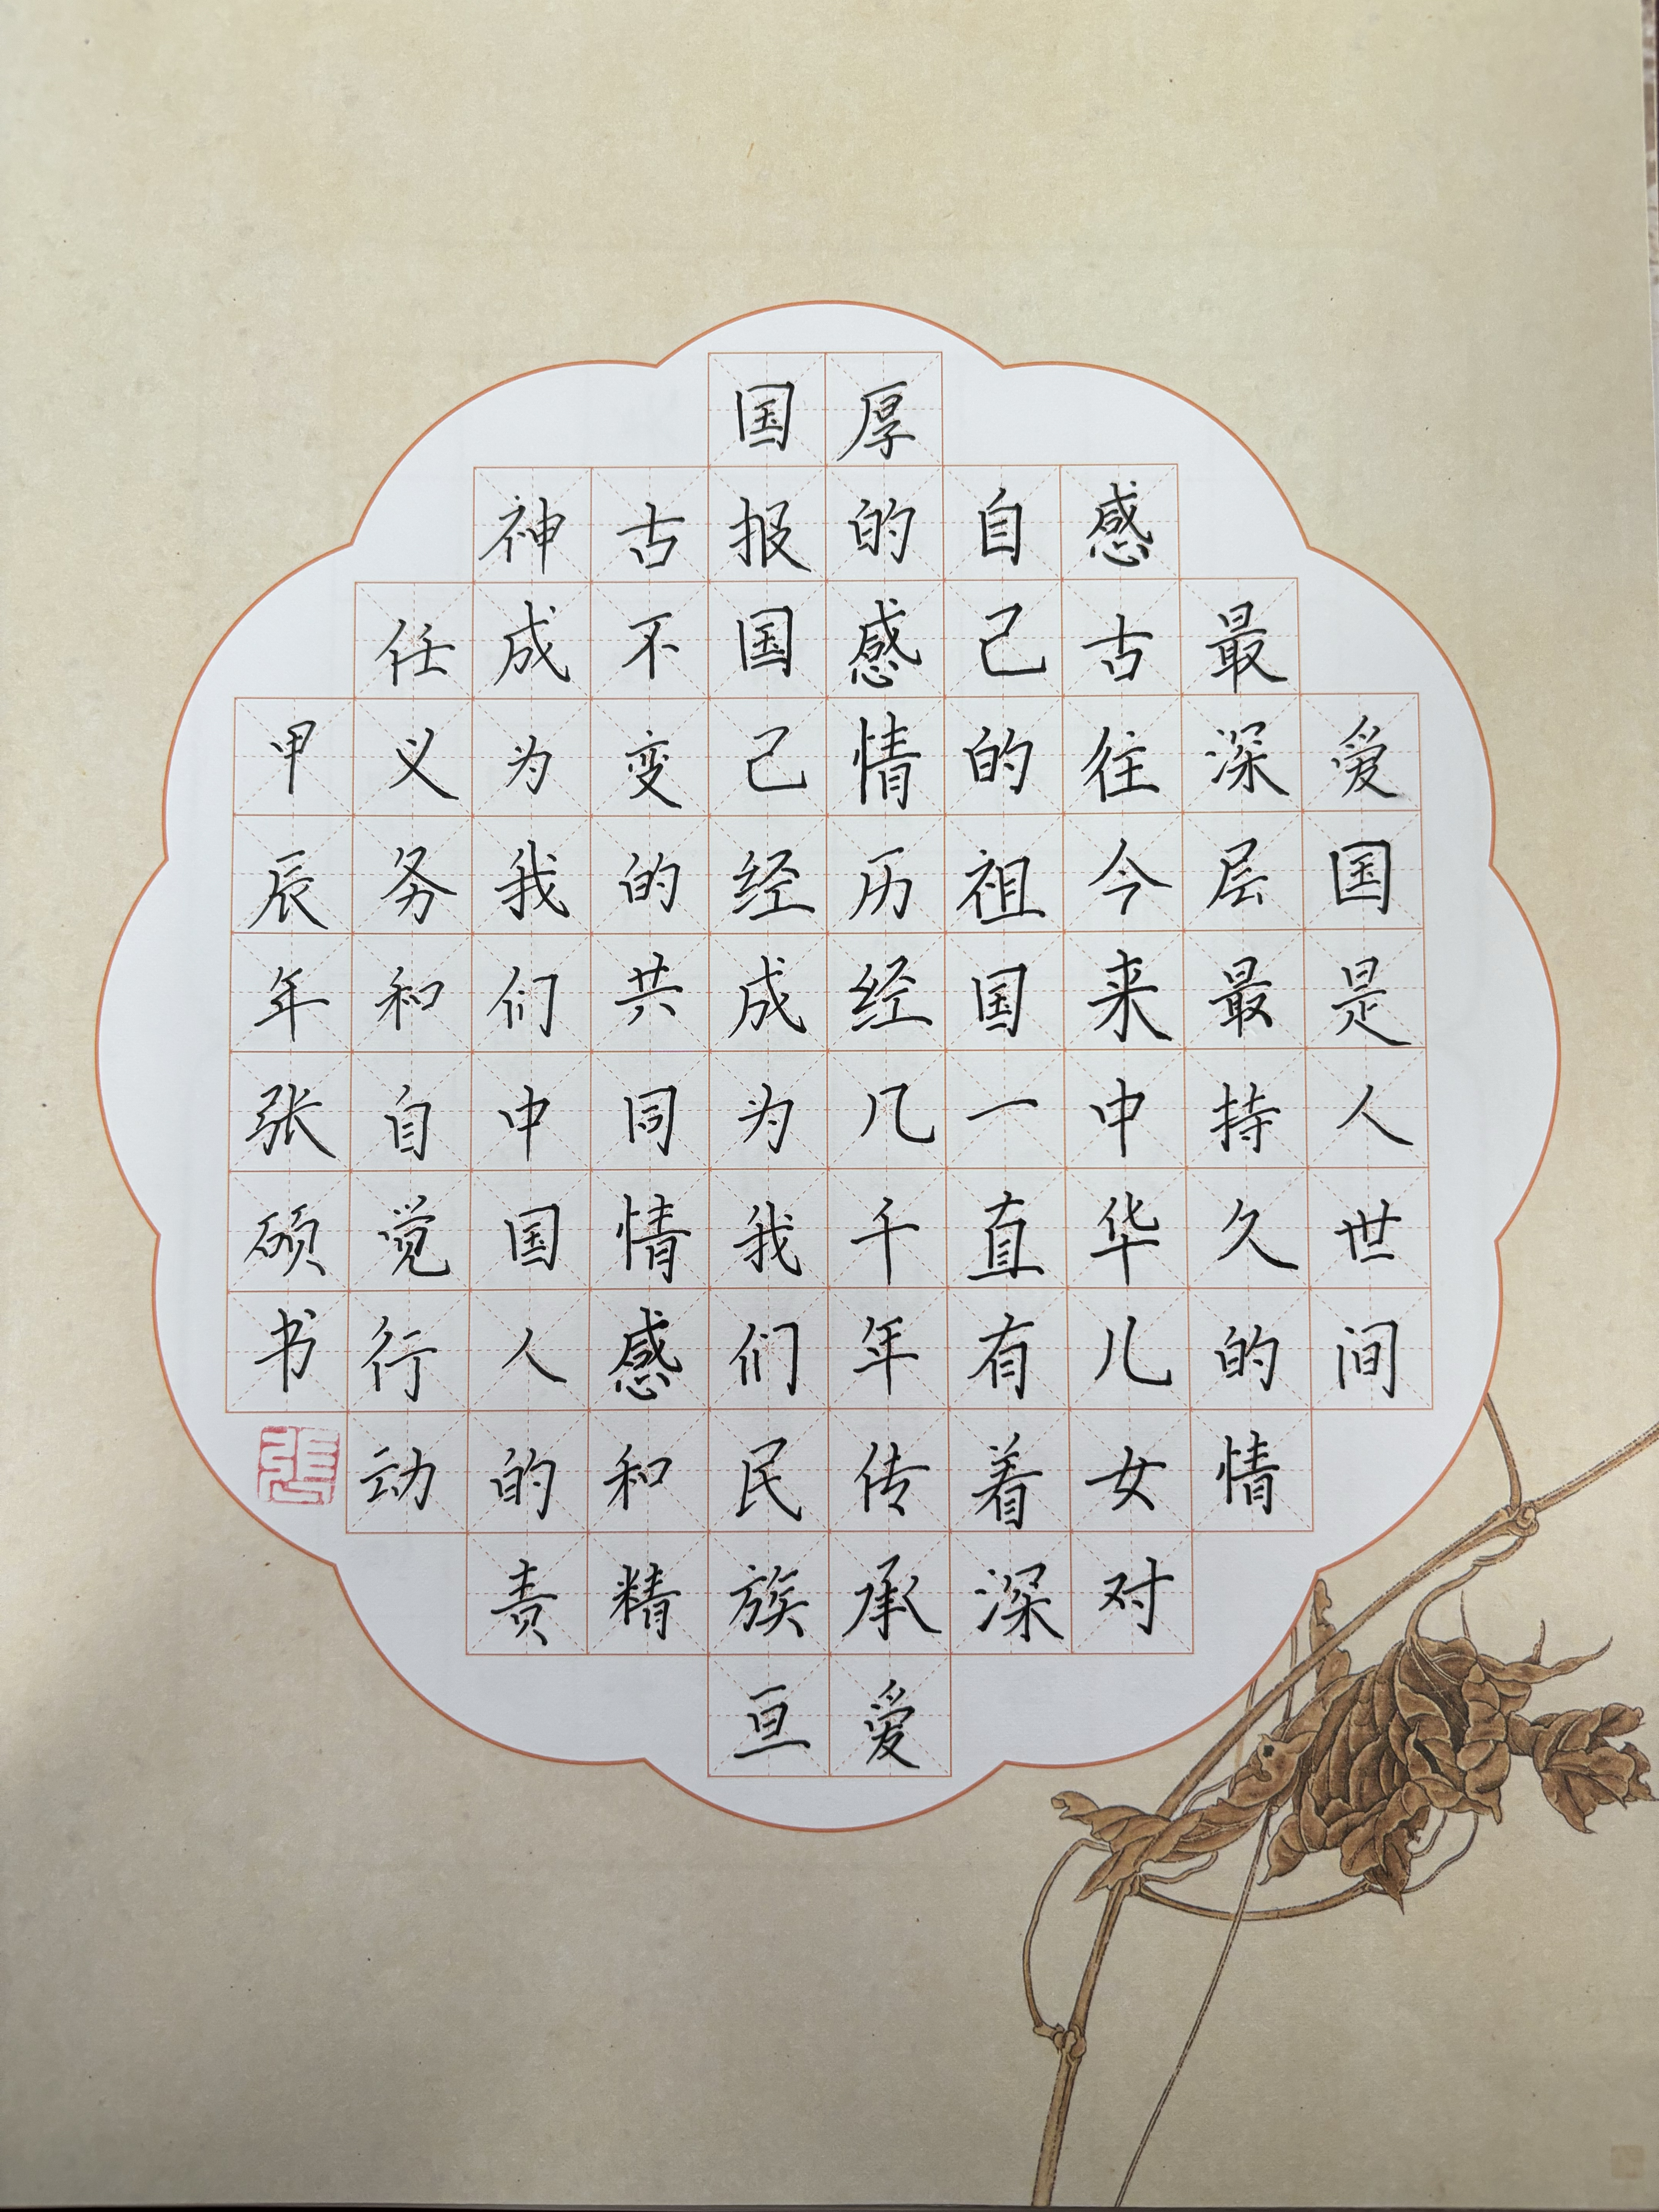 爱国是人世间
最深层最持久的情
感古往今来中华儿女对
自己的祖国一直有着深
厚的感情历经几千年传承爱
国报国己经成为我们民族亘
古不变的共同情感和精
神成为我们中国人的责
任义务和自觉行动
甲辰年张硕书